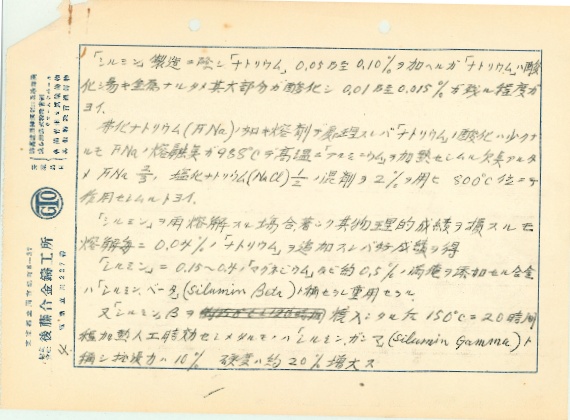 「シルミン」製造ニ際シ「ナトリウム」0.05乃至0.10%ヲ加ヘルガ「ナトリウム」ハ酸
化シ易キ金属ナルタメ其大部分ガ酸化シ 0.01乃至0.015%ガ残ル程度ガ
ヨイ。
弗化ナトリウム(FNa)ノ如キ熔剤デ処理スレバ「ナトリウム」酸化ハ少クナ
ルモ FNaノ熔融点ガ988°Cデ高温ニ「アルミニウム」ヲ加熱セシムル欠点アルタ
メ FNa 2/3, 塩化ナトリウム(NaCl) 1/2ノ混剤ヲ2%ヲ用ヒ 800°C位ニテ
作用セシムルトヨイ。
「シルミン」ヲ再熔解スル場合著シク其物理的成績ヲ損スルモ
熔解毎ニ 0.04%ノ「ナトリウム」ヲ追加スレバ好成績ヲ得
「シルミン」ニ 0.15〜0.4ノ「マグネシウム」及ビ約0.5%ノ満俺ヲ添加セル合金
ハ「シルミン、ベータ」(Silumin Beta)ト称セラレ重用セラル
又「シルミンβヲ 焼入シタル後 150°Cニ20時間
程加熱人工時効セシメタルモノハ「シルミン、ガンマ」(Silumin Gamma)ト
称シ抗張力ハ10% 硬度ハ約20%増大ス
GTO
後藤合金鋳工所